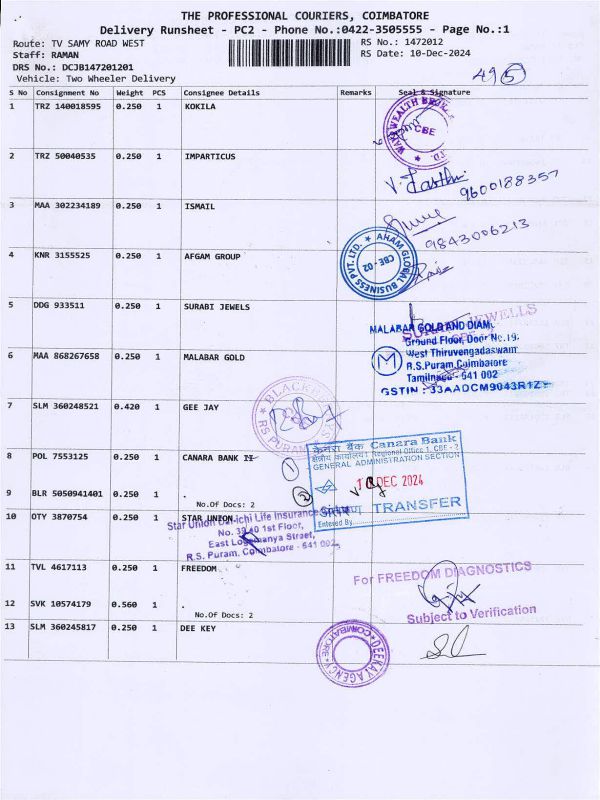 THE PROFESSIONAL COURIERS, COIMBATORE
Delivery Runsheet - PC2 - Phone No.:0422-3505555 - Page No.:1
Route: TV SAMY ROAD WEST RS No.: 1472012
Staff: RAMAN RS Date: 10-Dec-2024
DRS No.: DCJB147201201
Vehicle: Two Wheeler Delivery
49 5
S No Consignment No Weight PCS Consignee Details Remarks Seal & Signature
1 TRZ 140018595 0.250 1 KOKILA
CBE
2 TRZ 50040535 0.250 1 IMPARTICUS
9600188357
3 MAA 302234189 0.250 1 ISMAIL
9843006213
4 KNR 3155525 0.250 1 AFGAM GROUP
AHAM GLOBAL BUSINESS PVT. LTD.
CBE - 02
5 DDG 933511 0.250 1 SURABI JEWELS
JEWELLS
MALABAR GOLD AND DIAM
Ground Floor, Door No.19,
6 MAA 868267658 0.250 1 MALABAR GOLD
M
West Thiruvengadaswam
R.S.Puram, Coimbatore
Tamilnadu - 641 002
GSTIN : 33AADCM9043R1Z
7 SLM 360248521 0.420 1 GEE JAY
RS PURAM
8 POL 7553125 0.250 1 CANARA BANK II
केनरा बैंक Canara Bank
Regional Office 1, CBE - 2
GENERAL ADMINISTRATION SECTION
1
10 DEC 2024
9 BLR 5050941401 0.250 1 .
2
No.Of Docs: 2
TRANSFER
Entered By
10 OTY 3870754 0.250 1 STAR UNION
Star Union Dai-ichi Life Insurance
No. 39,40 1st Floor,
East Logamanya Street,
R.S. Puram, Coimbatore - 641 002.
11 TVL 4617113 0.250 1 FREEDOM
For FREEDOM DIAGNOSTICS
12 SVK 10574179 0.560 1 .
No.Of Docs: 2
Subject to Verification
13 SLM 360245817 0.250 1 DEE KEY
DEEKAY AGENCY
COIMBATORE